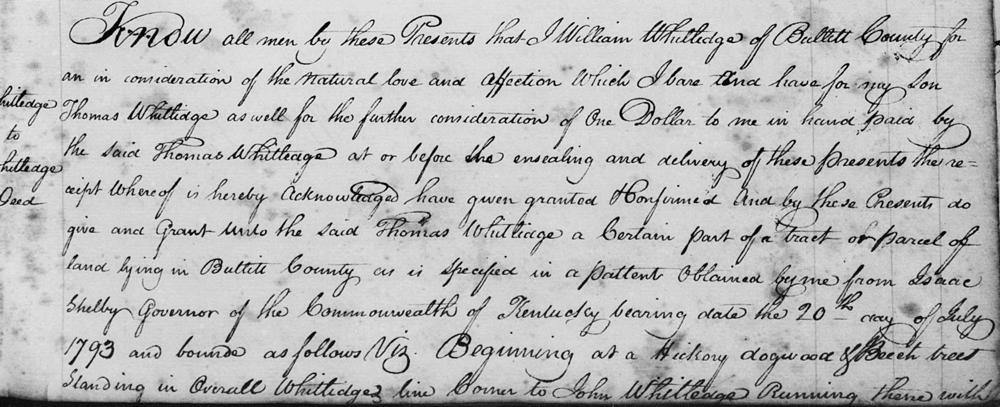 Know all men by these Presents that I William Whitledge of Bullitt County for
an in consideration of the natural love and affection Which I bare and have for my son
hitledge
Thomas Whitledge as well for the further consideration of One Dollar to me in hand paid by
to
the said Thomas Whitledge at or before the ensealing and delivery of these presents the re=
hitledge
ceipt Whereof is hereby Acknowledged have given granted & Confirmed And by these Presents do
Deed
give and Grant unto the said Thomas Whitledge a Certain part of a tract or parcel of
land lying in Bullitt County as is specified in a pattent Obtained by me from Isaac
Shelby Governor of the Commonwealth of Kentucky bearing date the 20th day of July
1793 and bounde as follows Viz. Beginning at a Hickory dogwood & Beech trees
Standing in Overall Whitledges line Corner to John Whitledge Running thence with